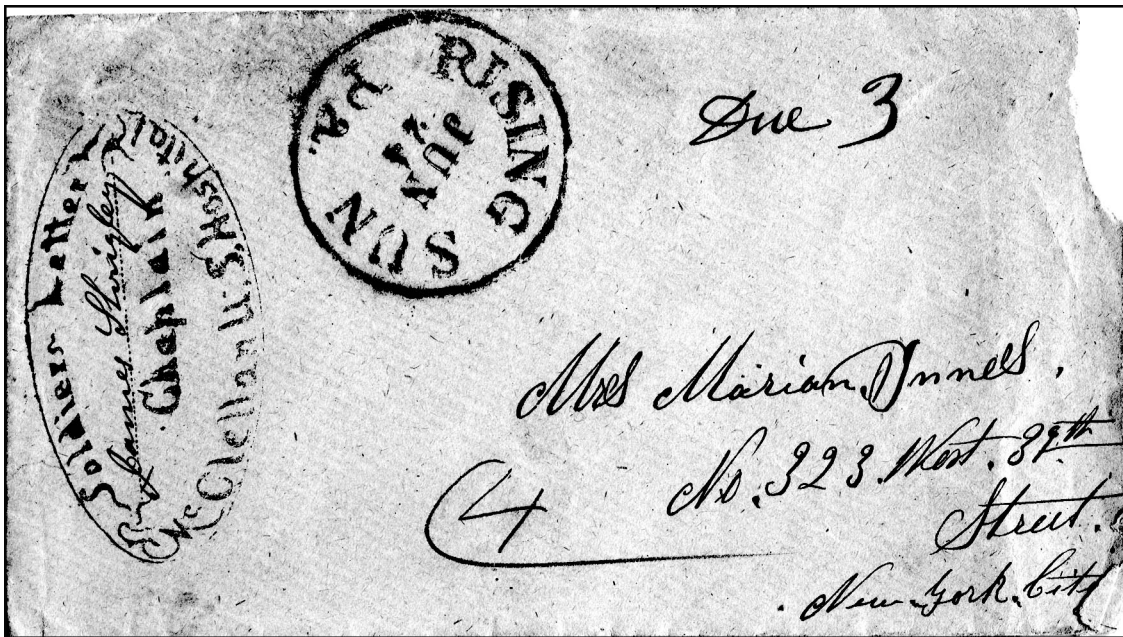 Soldiers Letter
James Shrigley
Chaplain
McClellan U.S. Hospital
RISING SUN PA.
JUN
Due 3
Mrs Marian Innnes.
No. 323. West. 39th
Street.
New-York. City
4